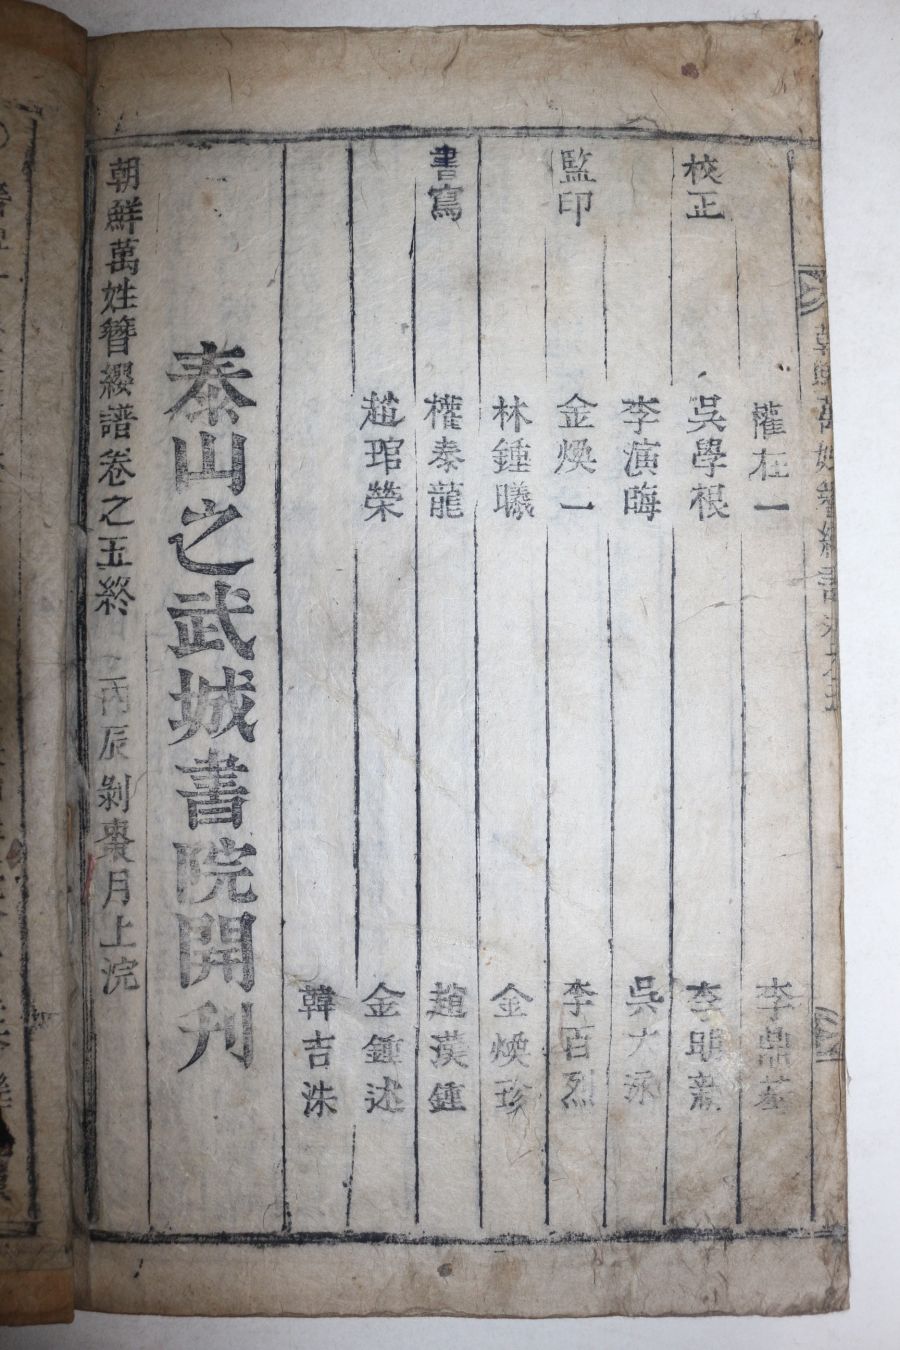 權在一 李鼎基
校正 吳學根 李明
李演晦 吳大泳
監印 金煥一 李百烈
林鍾曦 金煥珍
書寫 權泰龍 趙漢鍾
趙琯榮 金鍾述
韓吉洙
泰山之武城書院開刊
朝鮮萬姓簪纓譜卷之五終 丙辰剝棗月上浣